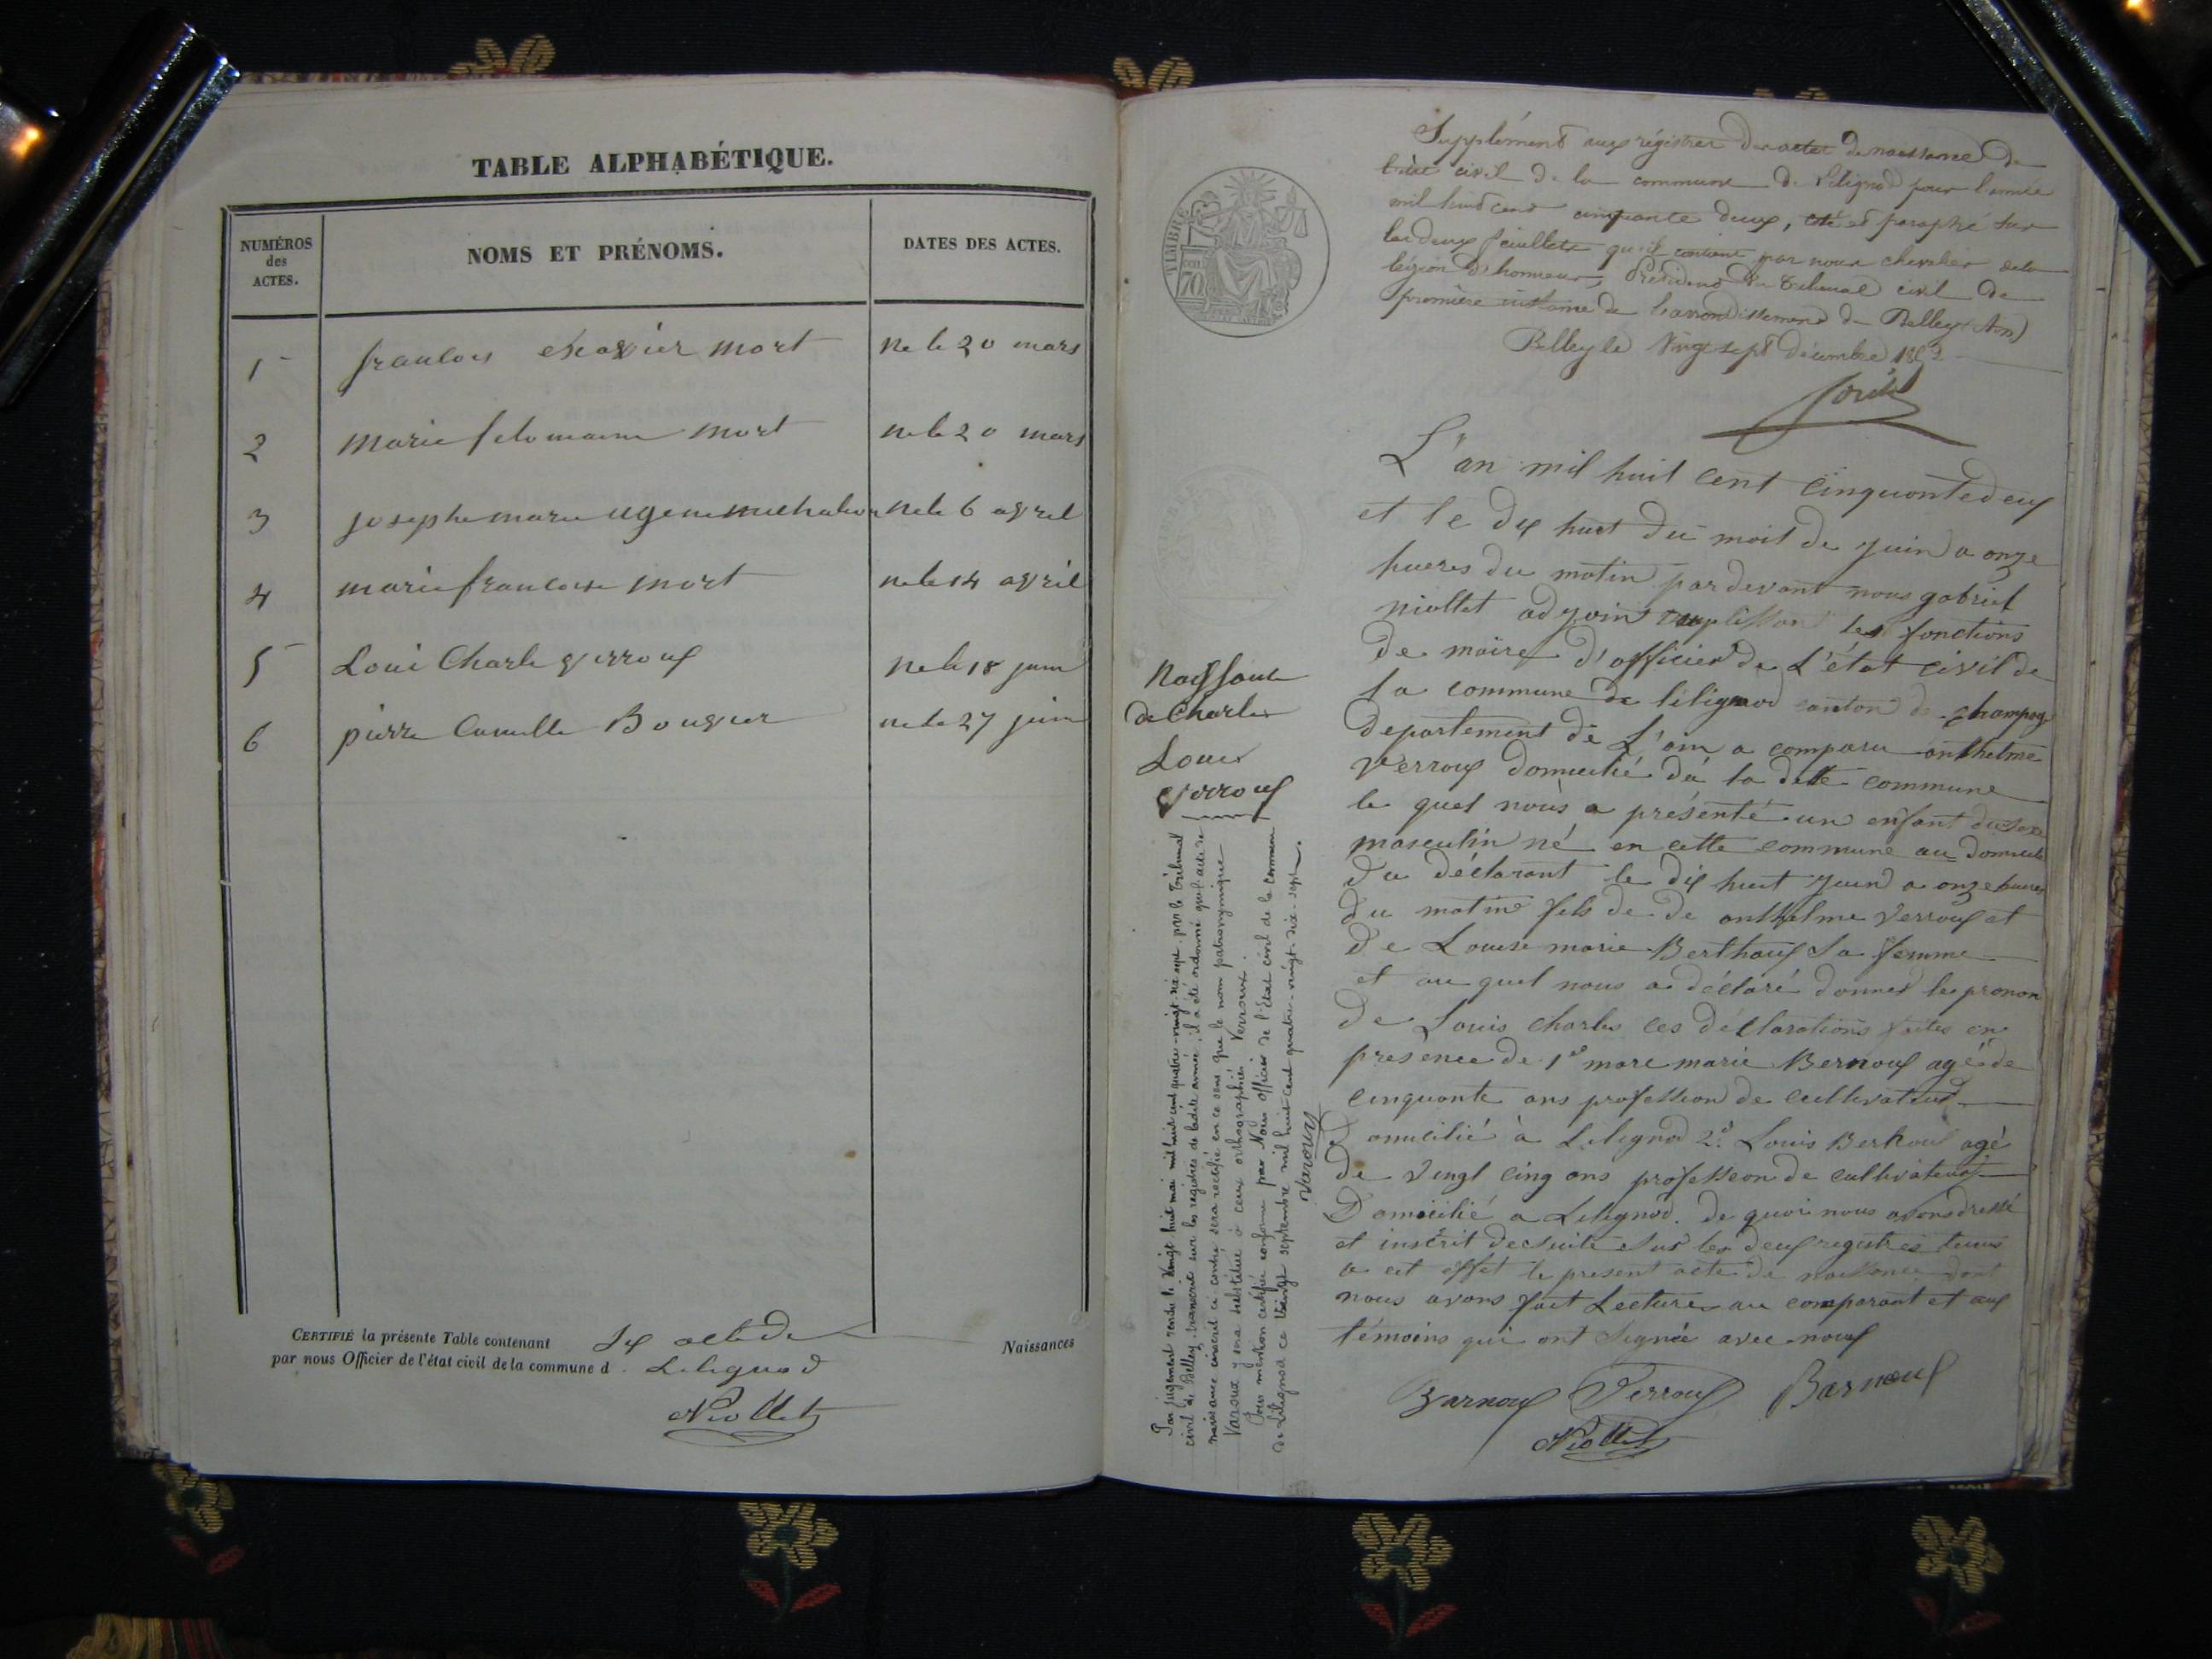 TABLE ALPHABÉTIQUE.
NUMÉROS
des
ACTES.
NOMS ET PRÉNOMS.
DATES DES ACTES.
1 francois exavier mort ne le 20 mars
2 marie filomaine mort ne le 20 mars
3 josephe marie ugene ne le 6 avril
4 marie francoise mort ne le 14 avril
5 Loui Charle verroux ne le 18 juin
6 pierre Camille Bouvier ne le 27 juin
CERTIFIÉ la présente Table contenant six acte de Naissances
par nous Officier de l'état civil de la commune d Lilignod
Niollet
TIMBRE
70
Supplément aux régistres des actes de naissance de
l'état civil de la commune de Lilignod pour l'année
mil huit cent cinquante deux, coté et paraphé sur
les deux feuillets qu'il contient par nous chevalier de la
légion d'honneur, Président du tribunal civil de
première instance de l'arrondissement de Belley (Ain)
Belley le vingt sept décembre 1852
Naissance
de Charles
Louis
verroux
L'an mil huit cent cinquante deux
et le dix huit du mois de juin a onze
hueres du matin par devant nous gabriel
niollet adjoint remplissan les fonctions
de maire d'officier de L'état civil de
la commune de lilignod canton de champag
departement de L'ain a comparu anthelme
verroux domicilié da la dette commune
le quel nous a présenté un enfant du sexe
masculin né en cette commune au domicile
du déclarant le dix huit juin a onze hueres
du matin fils de de anthelme verroux et
de Louise marie Berthoux sa femme
et au quel nous a déclaré donner les pronon
de Louis charles ces déclarations faites en
presence de 1º marc marie Bernoux agé de
cinquante ans profession de cultivateur
Domicilié à Lilignod 2º Louis agé
de vingt cinq ans profession de cultivateur
Domicilié a Lilignod. de quoi nous avons dressé
et inscrit de suite sur les deux registres tenus
a cet effet le present acte de naissance dont
nous avons fait Lecture au comparant et aux
témoins qui ont signée avec nous
Barnoux Verroux Barnoux
Niollet
Par jugement rendu le vingt huit mai mil huit cent quatre-vingt-dix-sept par le Tribunal
civil de Belley, transcrit sur les registres de ladite année, il a été ordonné que l'acte de
naissance inscrit ci-contre sera rectifié en ce sens que le nom patronymique
Varoux y sera substitué à ceux orthographiés Verroux.
Pour mention certifiée conforme par Nous officier de l'État civil de la commune
de Lilignod ce septembre mil huit cent quatre-vingt-dix-sept.
Varoux